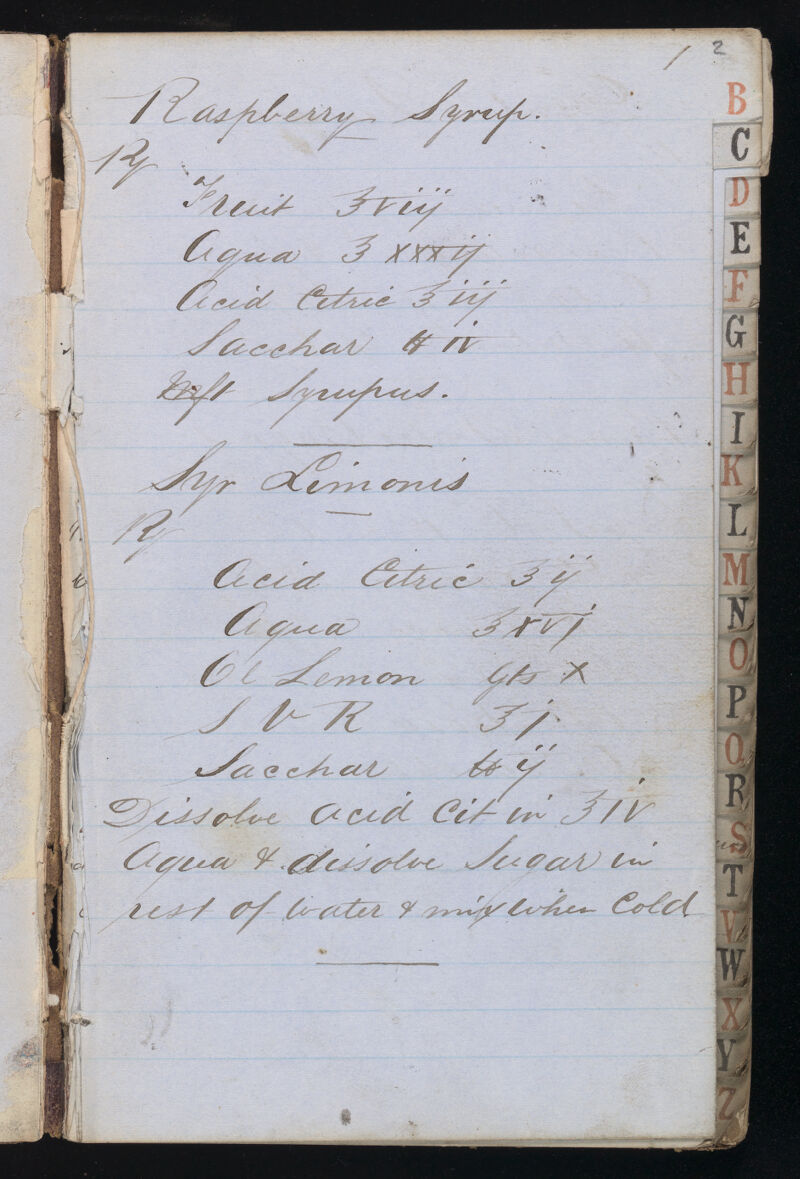 1 2
Raspberry Syrup.
℞
Fruit ʒ viij
Aqua ʒ xxxij
Acid Citric ʒ iij
Sacchar ℔ iv
Mft Syrupus.
Syr Limonis
℞
Acid Citric ʒ ij
Aqua ʒ xvj
Ol Lemon gts x
S V R ʒ j
Sacchar ℔ ij
Dissolve Acid Cit in ʒ iv
Aqua & dissolve Sugar in
rest of water & mix when Cold
B
C
D
E
F
G
H
I
K
L
M
N
O
P
Q
R
S
T
V
W
X
Y
Z